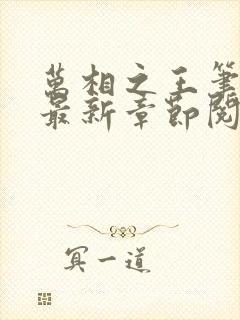 萬相之王筆
最新章節閱
冥一道